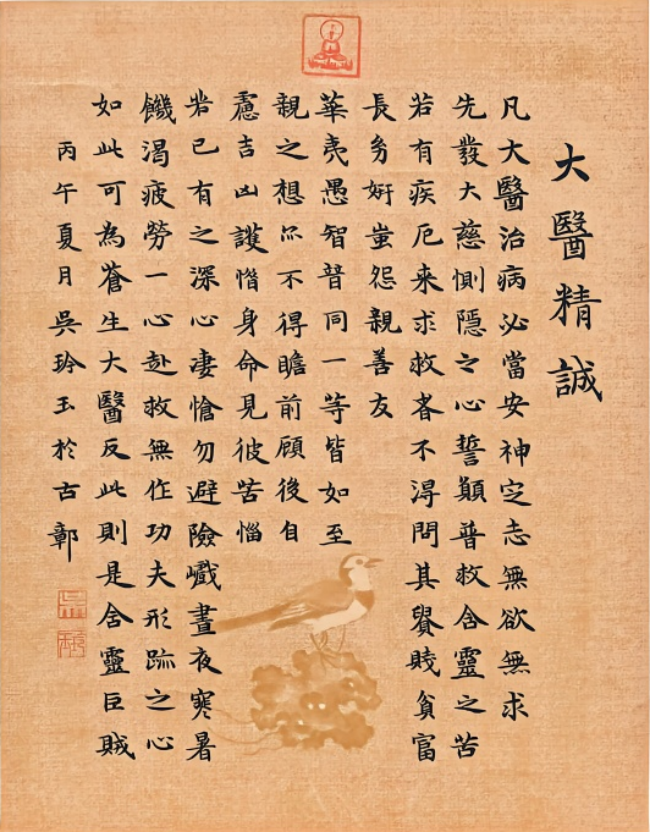 大醫精誠
凡大醫治病必當安神定志無欲無求
先發大慈惻隱之心誓願普救含靈之苦
若有疾厄来求救者不得問其貴賤貧富
長幼妍蚩怨親善友
華夷愚智普同一等皆如至
親之想亦不得瞻前顧後自
慮吉凶護惜身命見彼苦惱
若己有之深心凄愴勿避險巇晝夜寒暑
饑渴疲勞一心赴救無作功夫形跡之心
如此可為蒼生大醫反此則是含靈巨賊
丙午夏月吳玲玉於古鄣